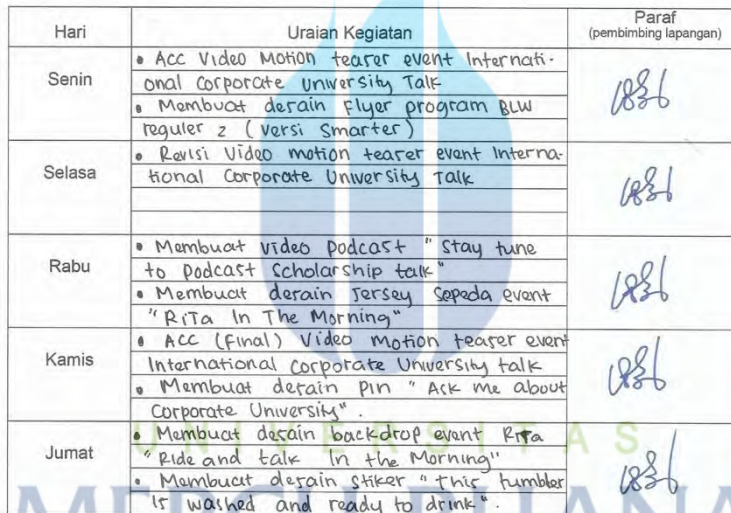 Hari Uraian Kegiatan Paraf
(pembimbing lapangan)
Senin
• Acc Video Motion teaser event Internati-
onal Corporate University Talk
• Membuat desain Flyer program BLW
reguler 2 (versi Smarter)
Selasa
• Revisi Video motion teaser event Interna-
tional Corporate University Talk
Rabu
• Membuat video podcast "Stay tune
to podcast Scholarship talk"
• Membuat desain Jersey Sepeda event
"RiTa In The Morning"
Kamis
• Acc (Final) Video Motion teaser event
International corporate University talk
• Membuat desain Pin "Ask me about
Corporate University".
Jumat
• Membuat desain backdrop event RiTa
"Ride and talk In the Morning"
• Membuat desain stiker "this tumbler
is washed and ready to drink".
UNIVERSITAS
MERCU BUANA